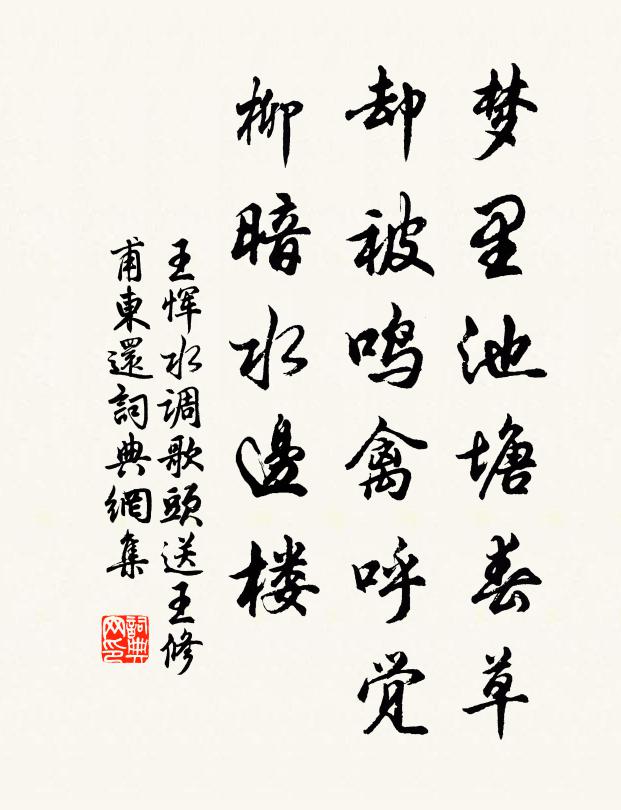 梦里池塘春草
却被鸣禽呼觉
柳暗水邊楼
王恽水调歌頭送王修
甫東還詞典網集
詞典网印